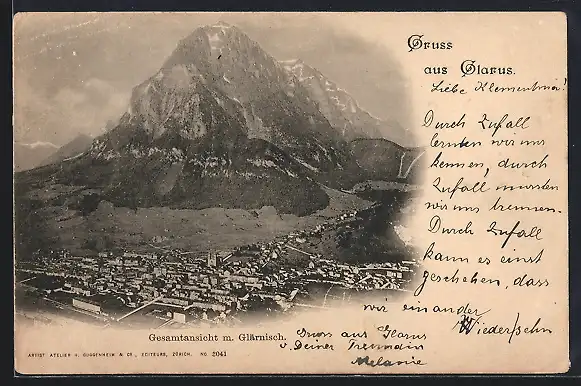 Gruss
aus Glarus.
Liebe Klementina!
Durch Zufall
lernten wir uns
kennen, durch
Zufall mussten
wir uns trennen.
Durch Zufall
kann es einst
geschehen, dass
wir einander
Wiedersehn
Gesamtansicht m. Glärnisch.
Gruss aus Glarus
v. Deiner Freundin
Melanie
ARTIST ATELIER H. GUGGENHEIM & CO., EDITEURS, ZÜRICH. No. 2041